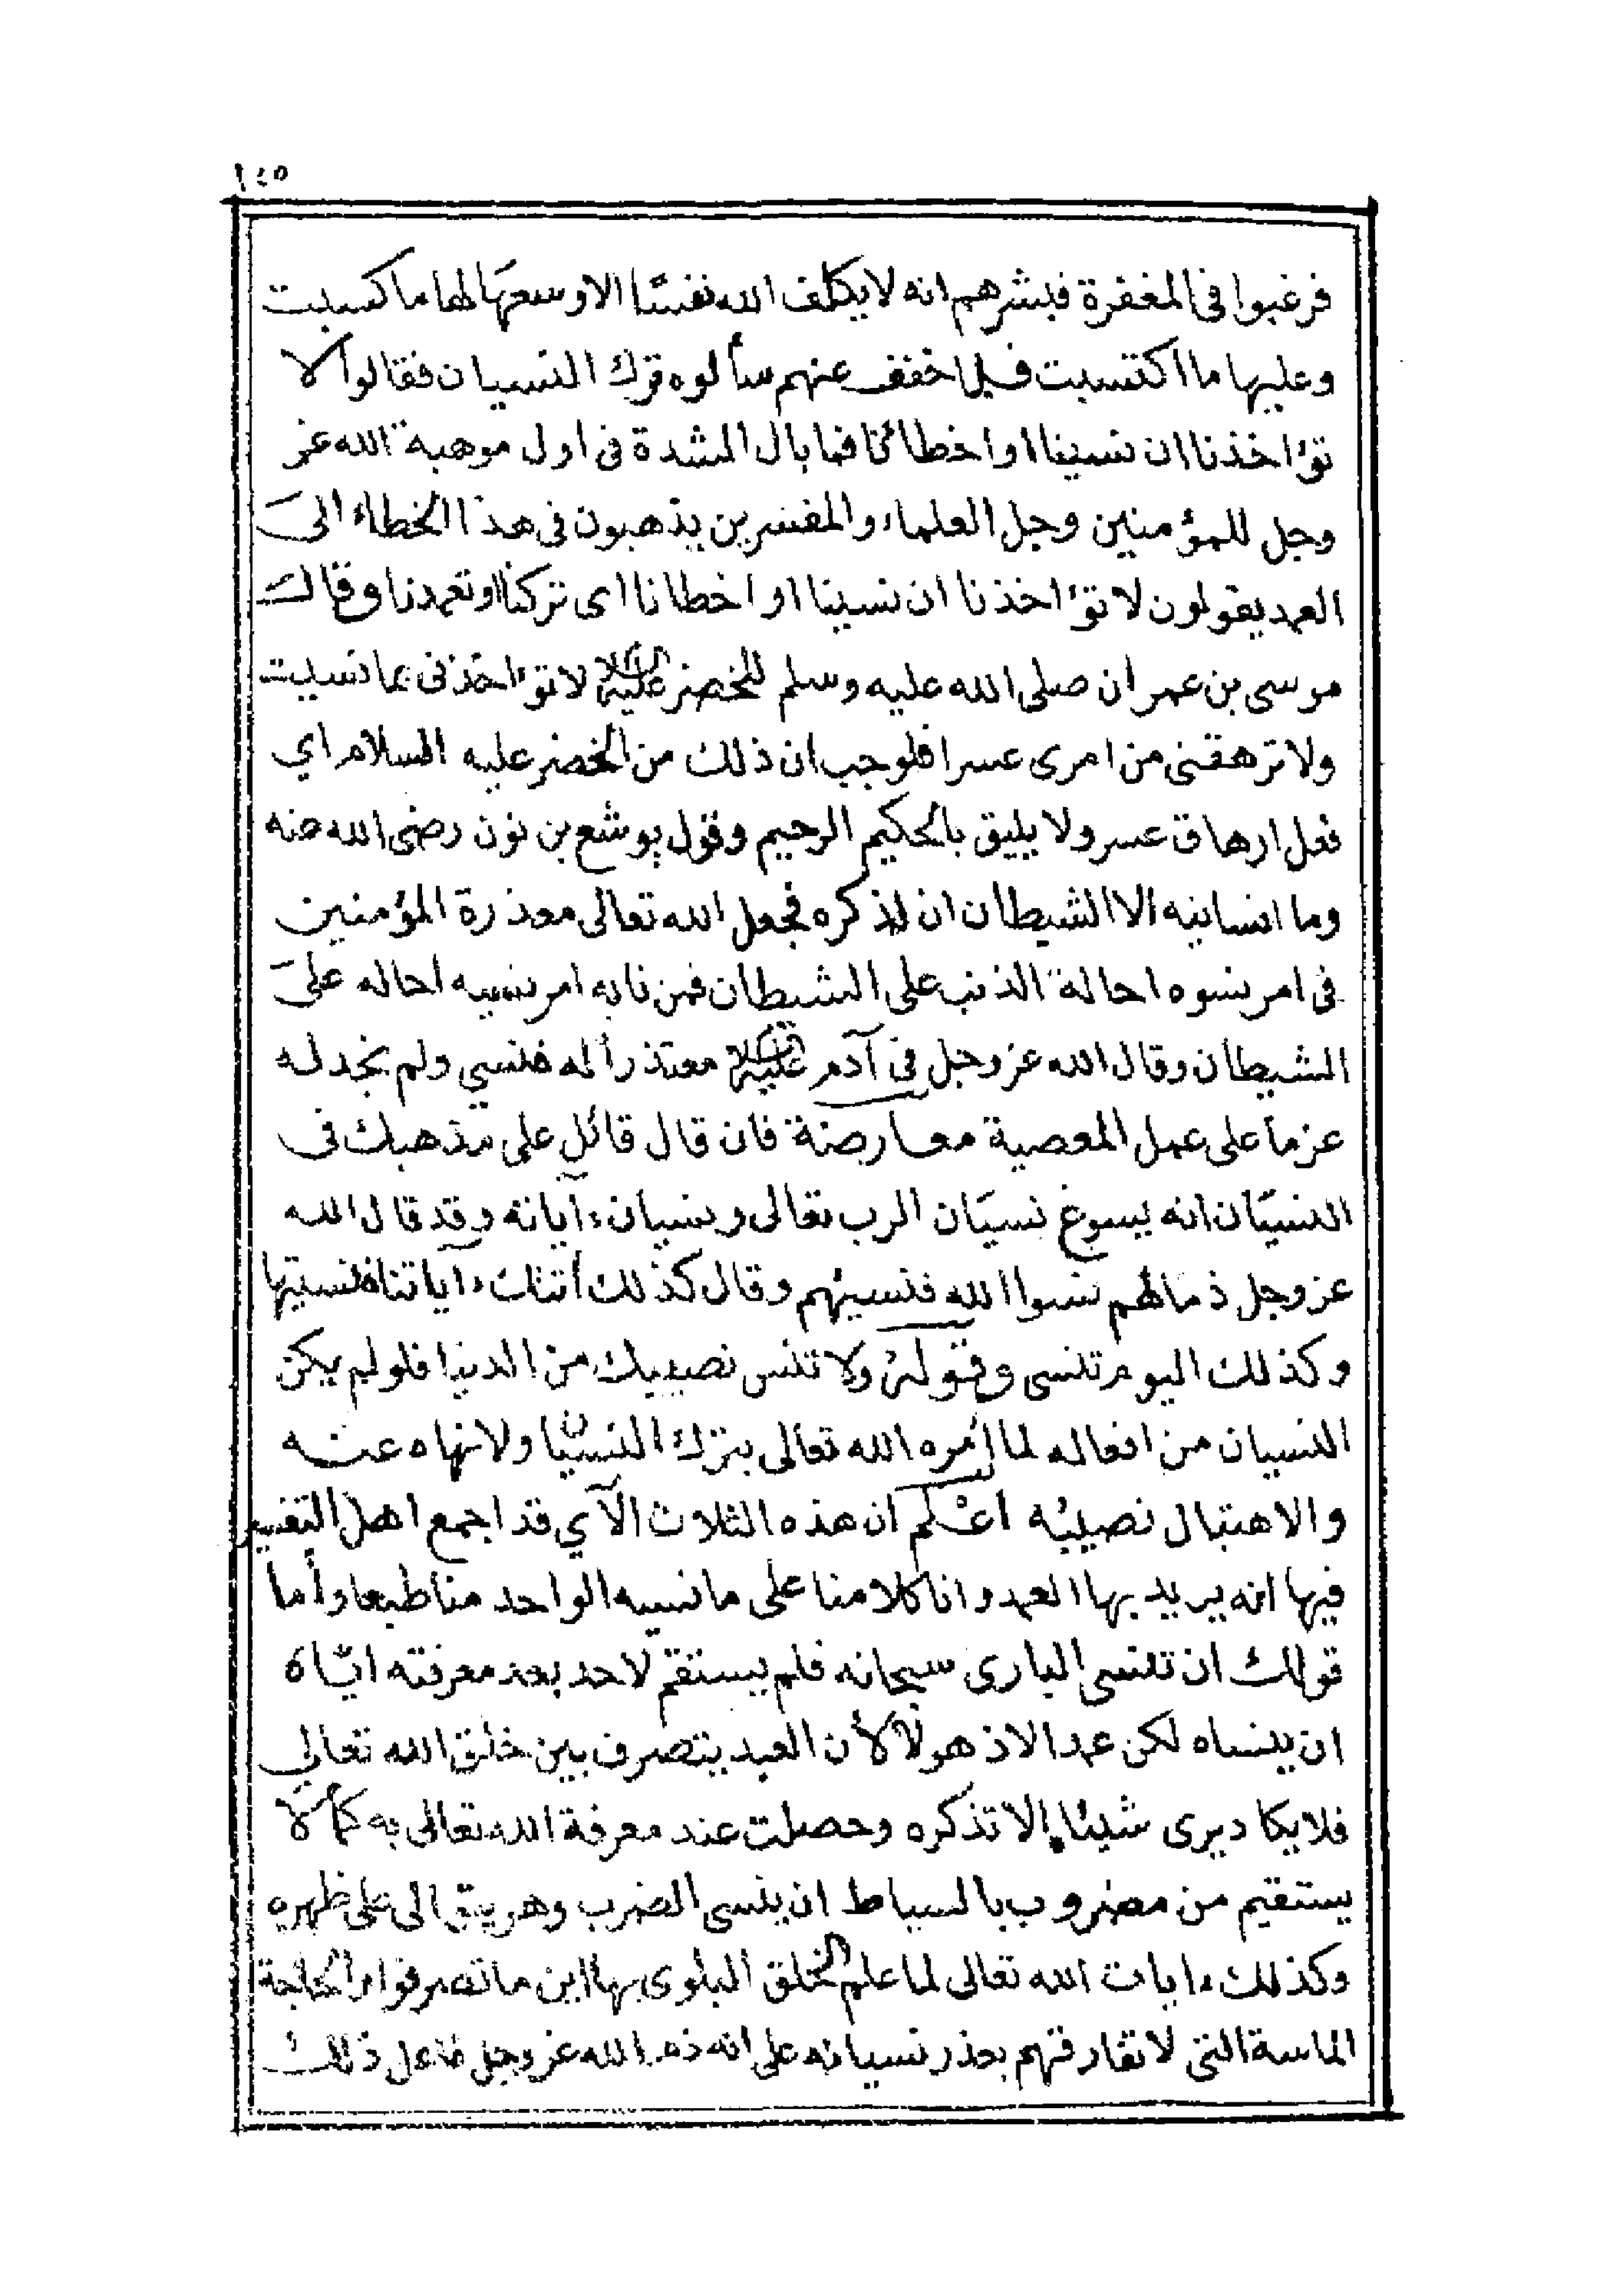 ١٤٥
فرغبوا في المغفرة فبشرهم انه لا يكلف الله نفسا الا وسعها لها ما كسبت
وعليها ما اكتسبت فلما خفف عنهم سألوه ترك النسيان فقالوا لا
تؤاخذنا ان نسينا او اخطائنا فما بال الشدة في اول موهبة الله عز
وجل للمؤمنين وجل العلماء والمفسرين يذهبون في هذا الخطاء الى
العمد يقولون لا تؤاخذنا ان نسينا او اخطانا اى تركنا او تعمدنا وقال
موسى بن عمران صلى الله عليه وسلم للخضر عليه السلام لا تؤاخذنى بما نسيت
ولا ترهقنى من امرى عسرا فلوجب ان ذلك من الخضر عليه السلام اي
فعل ارهاق عسر ولا يليق بالحكيم الرحيم وقول يوشع بن نون رضى الله عنه
وما انسانيه الا الشيطان ان اذكره فجعل الله تعالى معذرة المؤمنين
فى امر نسوه احالة الذنب على الشيطان فمن نابه امر نسيه احاله على
الشيطان وقال الله عز وجل فى آدم عليه السلام معتذرا له فنسي ولم نجد له
عزما على عمل المعصية معارضة فان قال قائل على مذهبك فى
النسيان انه يسوغ نسيان الرب تعالى ونسيان ءاياته وقد قال الله
عز وجل ذما لهم نسوا الله فنسيهم وقال كذلك أتتك ءاياتنا فنسيتها
وكذلك اليوم تنسى وقوله ولا تنس نصيبك من الدنيا فلو لم يكن
النسيان من افعاله لما امره الله تعالى بترك النسيان ولا نهاه عنه
والاهتبال نصيبه اعلم ان هذه الثلاث الآي قد اجمع اهل التفسير
فيها انه يريد بها العمد وانا كلامنا على ما نسيه الواحد منا طبعا وأما
قولك ان تنسى البارى سبحانه فلم يستقم لاحد بعد معرفته اياه
ان ينساه لكن عمدا لا ذهولا لأن العبد يتصرف بين خلق الله تعالى
فلا يكاد يرى شيئا إلا تذكره وحصلت عند معرفة الله تعالى به كما لا
يستقيم من مضروب بالسياط ان ينسى الضرب وهو يتوالى على ظهره
وكذلك ءايات الله تعالى لما علم الخلق البلوى بها اين ما تصرفوا والحاجة
الماسة التى لا تفارقهم بحذر نسيانه على انه ذم الله عز وجل فاعل ذلك